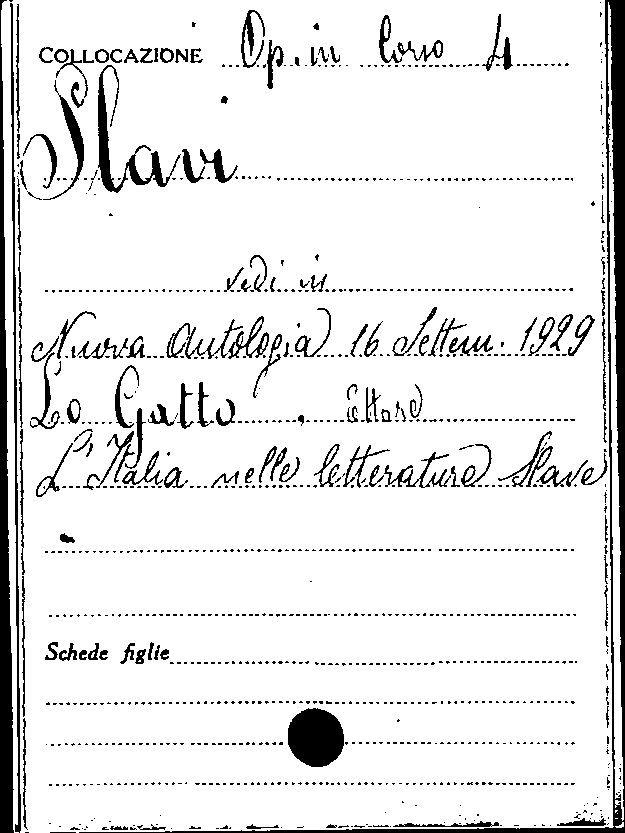 COLLOCAZIONE Op. in Corso 4
Slavi
vedi in
Nuova Antologia 16 Settem. 1929
Lo Gatto . Ettore
L'Italia nelle letterature Slave
Schede figlie